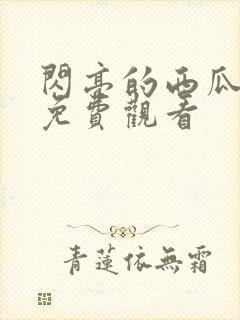 閃亮的西瓜
免費觀看
青蓮依無霜